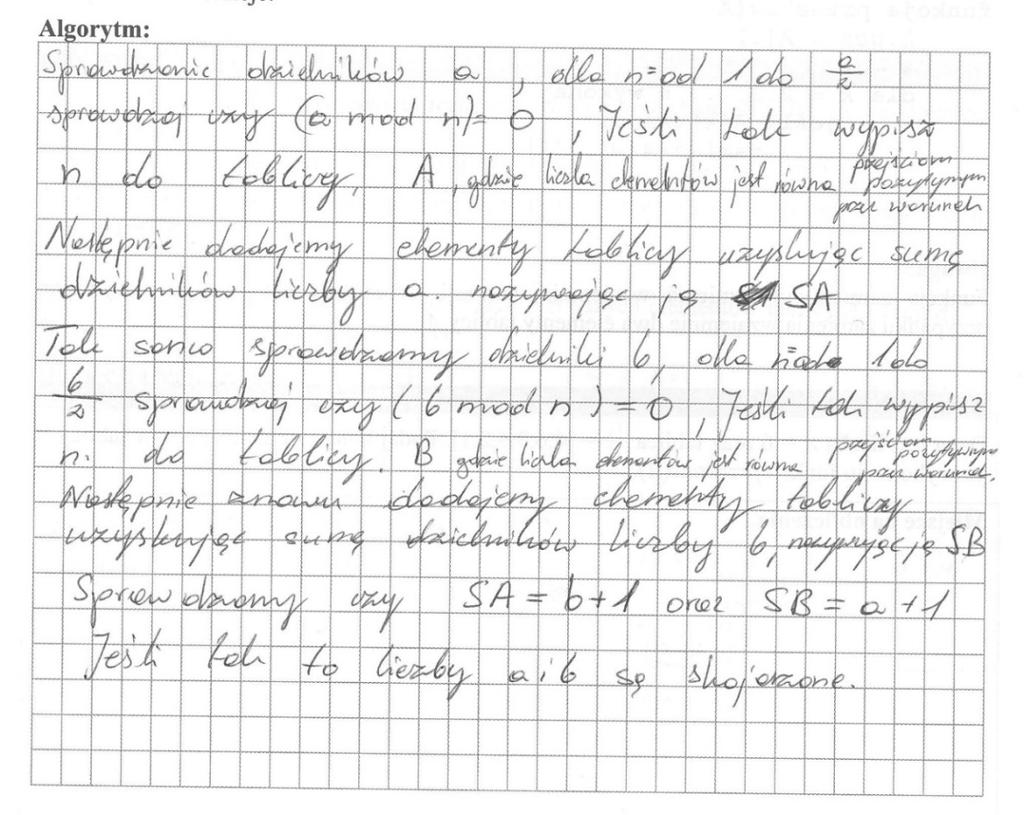 Algorytm:
Sprawdzanie dzielników a, dla n=od 1 do a/2
sprawdzaj czy (a mod n)= 0, Jeśli tak wypisz
n do tablicy, A, gdzie liczba elementów jest równa przejściom pozytywnym przez warunek
Następnie dodajemy elementy tablicy uzyskując sumę
dzielników liczby a. nazywając ją SA
Tak samo sprawdzamy dzielniki b, dla n=od 1 do
b/2 sprawdzaj czy (b mod n) = 0, Jeśli tak wypisz
n. do tablicy. B gdzie liczba elementów jest równa przejściom pozytywnym przez warunek.
Następnie znowu dodajemy elementy tablicy
uzyskując sumę dzielników liczby b, nazywając ją SB
Sprawdzamy czy SA = b+1 oraz SB = a+1
Jeśli tak to liczby a i b są skojarzone.